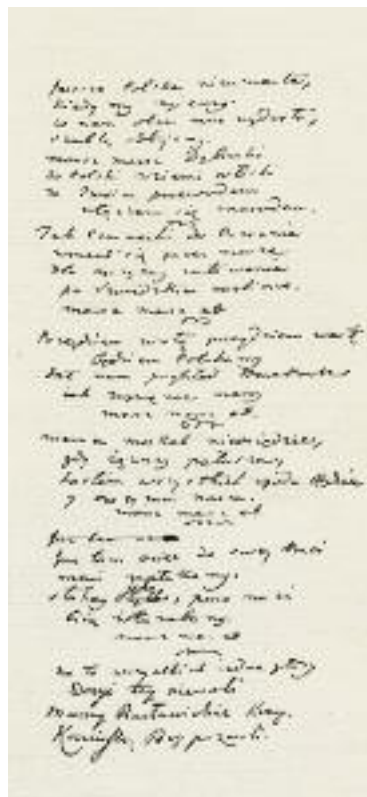 Jeszcze Polska nie umarła,
kiedy my żyjemy.
Co nam obca moc wydarła,
szablą odbijemy.
marsz marsz Dąbrowski
do Polski z ziemi włoski
za Twoim przewodem
złączem się z narodem.
Jak Czarnecki do Poznania
wracał się przez morze
dla ojczyzny ratowania
po szwedzkim rozbiorze.
marsz marsz et
Przejdziem Wisłę przejdziem Wartę
będziem Polakamy
dał nam przykład Bonaparte
jak zwyciężać mamy
marsz marsz et
Moskal nie osiędzie,
gdy jąwszy pałasza,
hasłem wszystkich zgoda będzie
y ojczyzna nasza.
marsz marsz et
Już tam
Już tam ociec do swej Basi
mówi zapłakany.
słuchaj, pono nasi
biją w tarabany.
marsz marsz et
Na to wszystkich jedne głosy
Dosyć tej niewoli
Mamy Racławickie Kosy.
Kościuszkę Bóg pozwoli.